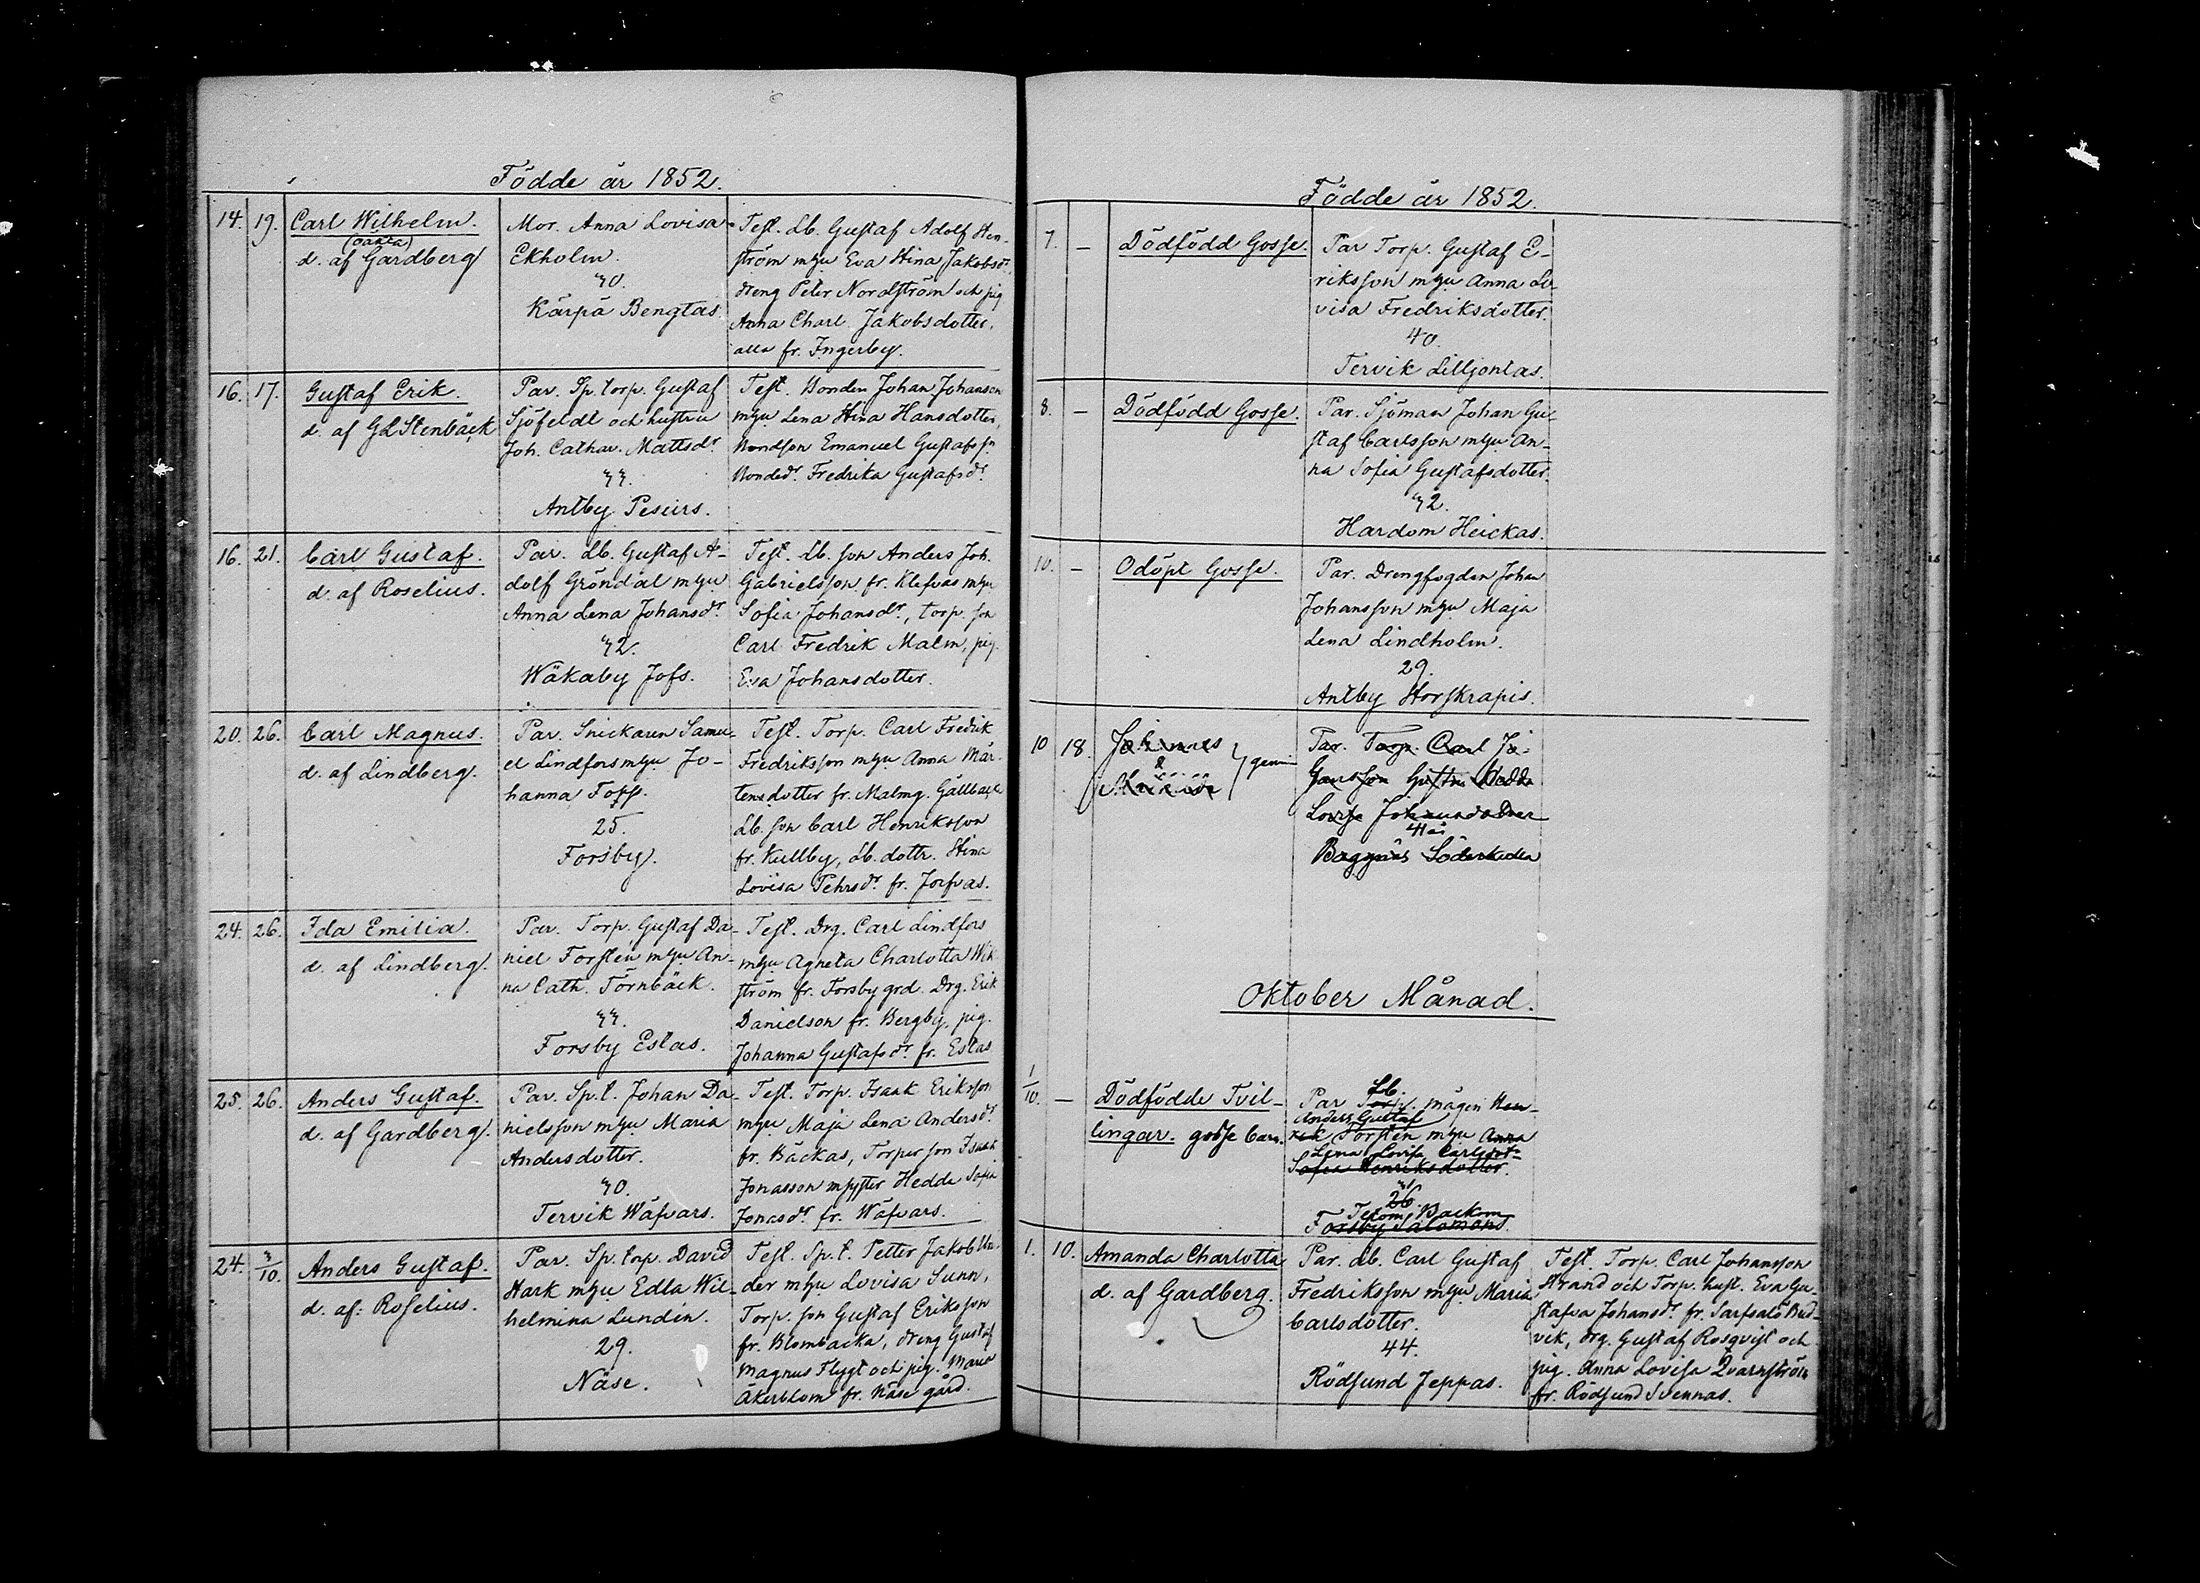 Födde år 1852.
14. 19. Carl Wilhelm.
(oäkta)
d. af Gardberg
Mor. Anna Lovisa
Ekholm.
30.
Kärpä Bengtas.
Test. Lb. Gustaf Adolf Hen-
ström mhu Eva Stina Jakobsdr,
dreng Peter Nordström och pig
Anna Charl. Jakobsdotter,
alla fr. Ingerby.
16. 17. Gustaf Erik.
d. af G L Stenbäck
Par. Sp. torp. Gustaf
Sjöfeldt och hustru
Joh. Cathar. Mattsdr
33.
Antby Pesurs.
Test. Bonden Johan Johanson
mhu Lena Stina Hansdotter,
Bondson Emanuel Gustafssn
Bondedr. Fredrika Gustafsdr
16. 21. Carl Gustaf.
d. af Roselius.
Par. Lb. Gustaf A-
dolf Gröndal mhu
Anna Lena Johansdr
32.
Wäkaby Jofs.
Test. Lb. son Anders Joh.
Gabrielsson fr. Klefvas mhu
Sofia Johansdr, torp. son
Carl Fredrik Malm, pig.
Eva Johansdotter.
20. 26. Carl Magnus.
d. af Lindberg.
Par. Snickaren Samu-
el Lindfors mhu Jo-
hanna Foss.
25.
Forsby.
Test. Torp. Carl Fredrik
Fredriksson mhu Anna Mår-
tensdotter fr. Malmg. Gällback
Lb. son Carl Henriksson
fr. Kullby, Lb. dottr. Stina
Lovisa Pehrsdr fr. Jofvas.
24. 26. Ida Emilia.
d. af Lindberg.
Par. Torp. Gustaf Da-
niel Forstén mhu An-
na Cath. Törnbäck.
33.
Forsby Estas.
Test. Drg. Carl Lindfors
mhu Agneta Charlotta Wik
ström fr. Forsby grd. Drg. Erik
Danielson fr. Bergby, pig.
Johanna Gustafsdr fr. Estas
25. 26. Anders Gustaf.
d. af Gardberg.
Par. Sp. t. Johan Da-
nielsson mhu Maria
Andersdotter.
30.
Tervik Wäfvars.
Test. Torp. Isaak Eriksson
mhu Maja Lena Andersdr
fr. Bäckas, Torpar son Isaak
Jonasson m syster Hedda Sofia
Jonasdr fr. Wäfvars.
24. 3/10. Anders Gustaf.
d. af: Roselius.
Par. Sp. torp. David
Hark mhu Edla Wil-
helmina Lundén.
29.
Näse.
Test. Sp. t. Petter Jakob Un-
der mhu Lovisa Sunn,
Torp. son Gustaf Eriksson
fr. Blombacka, dreng Gustaf
Magnus Flygt och pig. Maria
Åkerblom fr. Näse gård.
Födde år 1852.
7. – Dödfödd Gosse.
Par Torp. Gustaf E-
riksson mhu Anna Lo-
visa Fredriksdotter.
40.
Tervik Lilljontas.
8. – Dödfödd Gosse.
Par. Sjöman Johan Gu-
staf Carlsson mhu An-
na Sofia Gustafsdotter.
32.
Hardom Heickas.
10. – Odöpt Gosse.
Par. Drengfogden Johan
Johansson mhu Maja
Lena Lindholm.
29.
Antby Storskrapis.
10 18. Johannes
&
Par. Torp. Carl Jo-
Hedda
Lovisa
41 år
Baggnäs
Oktober Månad.
1/10. – Dödfödde Tvil-
lingar. gosse barn.
Lb.
Par Torp. mågen Hen-
Anders Gustaf
rik Forstén mhu Anna
Lena Lovisa Carlsdotr
Sofia Henriksdotter.
31
26
Tetom Backom
Forsby Salomons
1. 10. Amanda Charlotta
d. af Gardberg.
Par. Lb. Carl Gustaf
Fredriksson mhu Maria
Carlsdotter.
44.
Rödsund Jeppas.
Test. Torp. Carl Johansson
Strand och Torp. hust. Eva Gu-
stafva Johansdr fr. Sarfsalö Bud-
vik, drg. Gustaf Rosqvist och
pig. Anna Lovisa Qvarnström
fr. Rödsund Svennas.